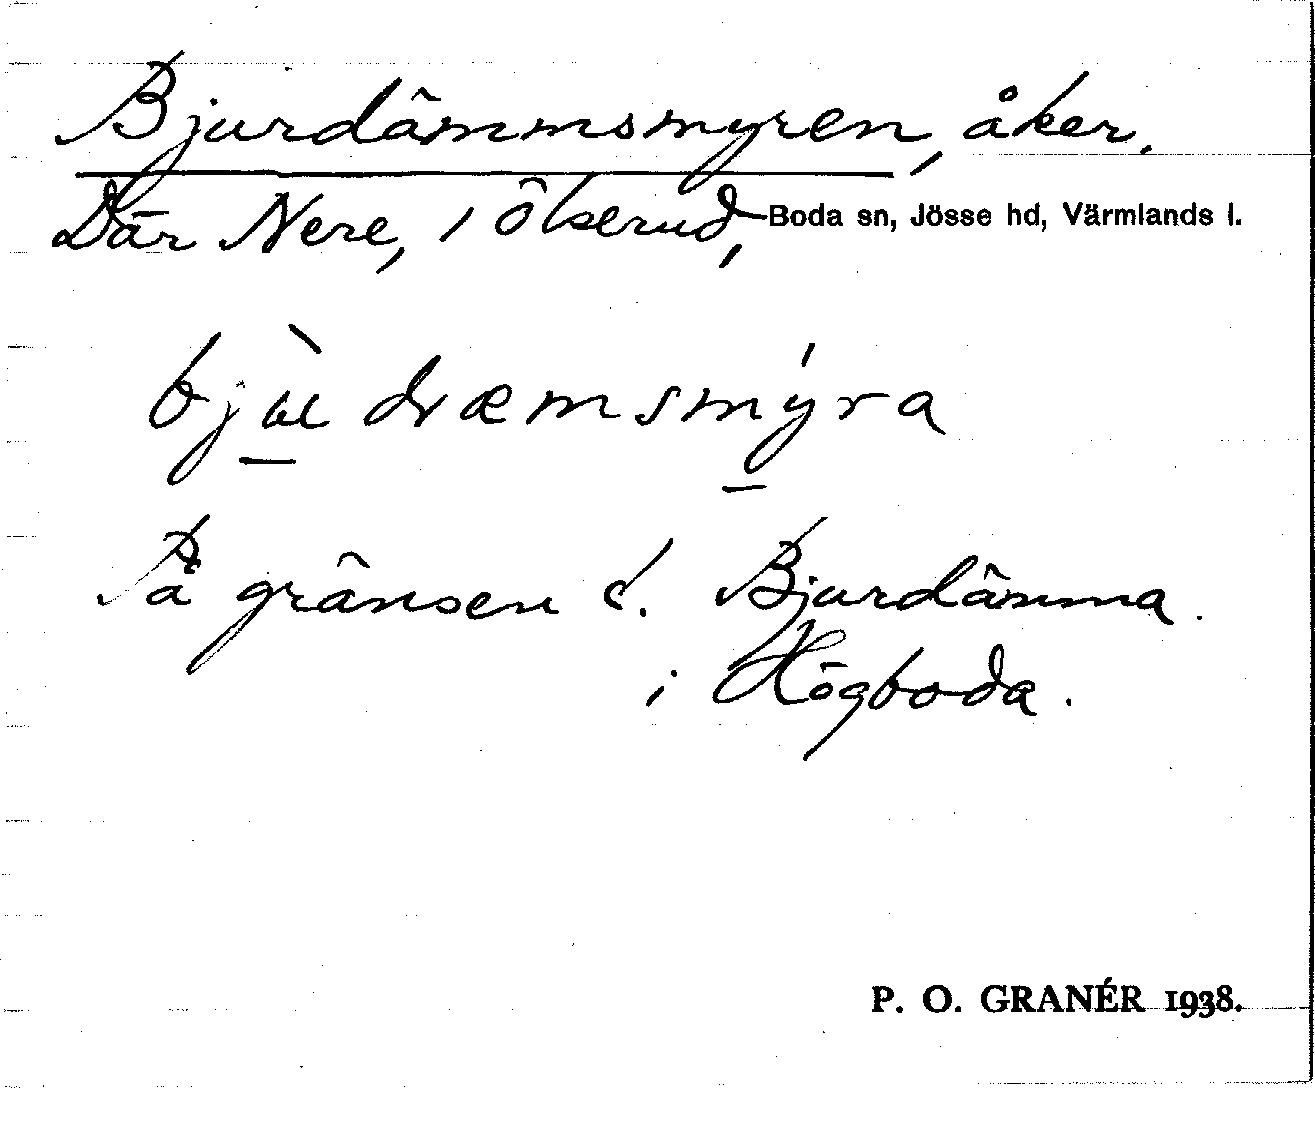 Bjurdämmsmyren, åker.
Där Nere, i Ölserud, Boda sn, Jösse hd, Värmlands l.
bjὺ dæmsmýra
På gränsen t. Bjurdämma.
i Högboda.
P. O. GRANÉR 1938.